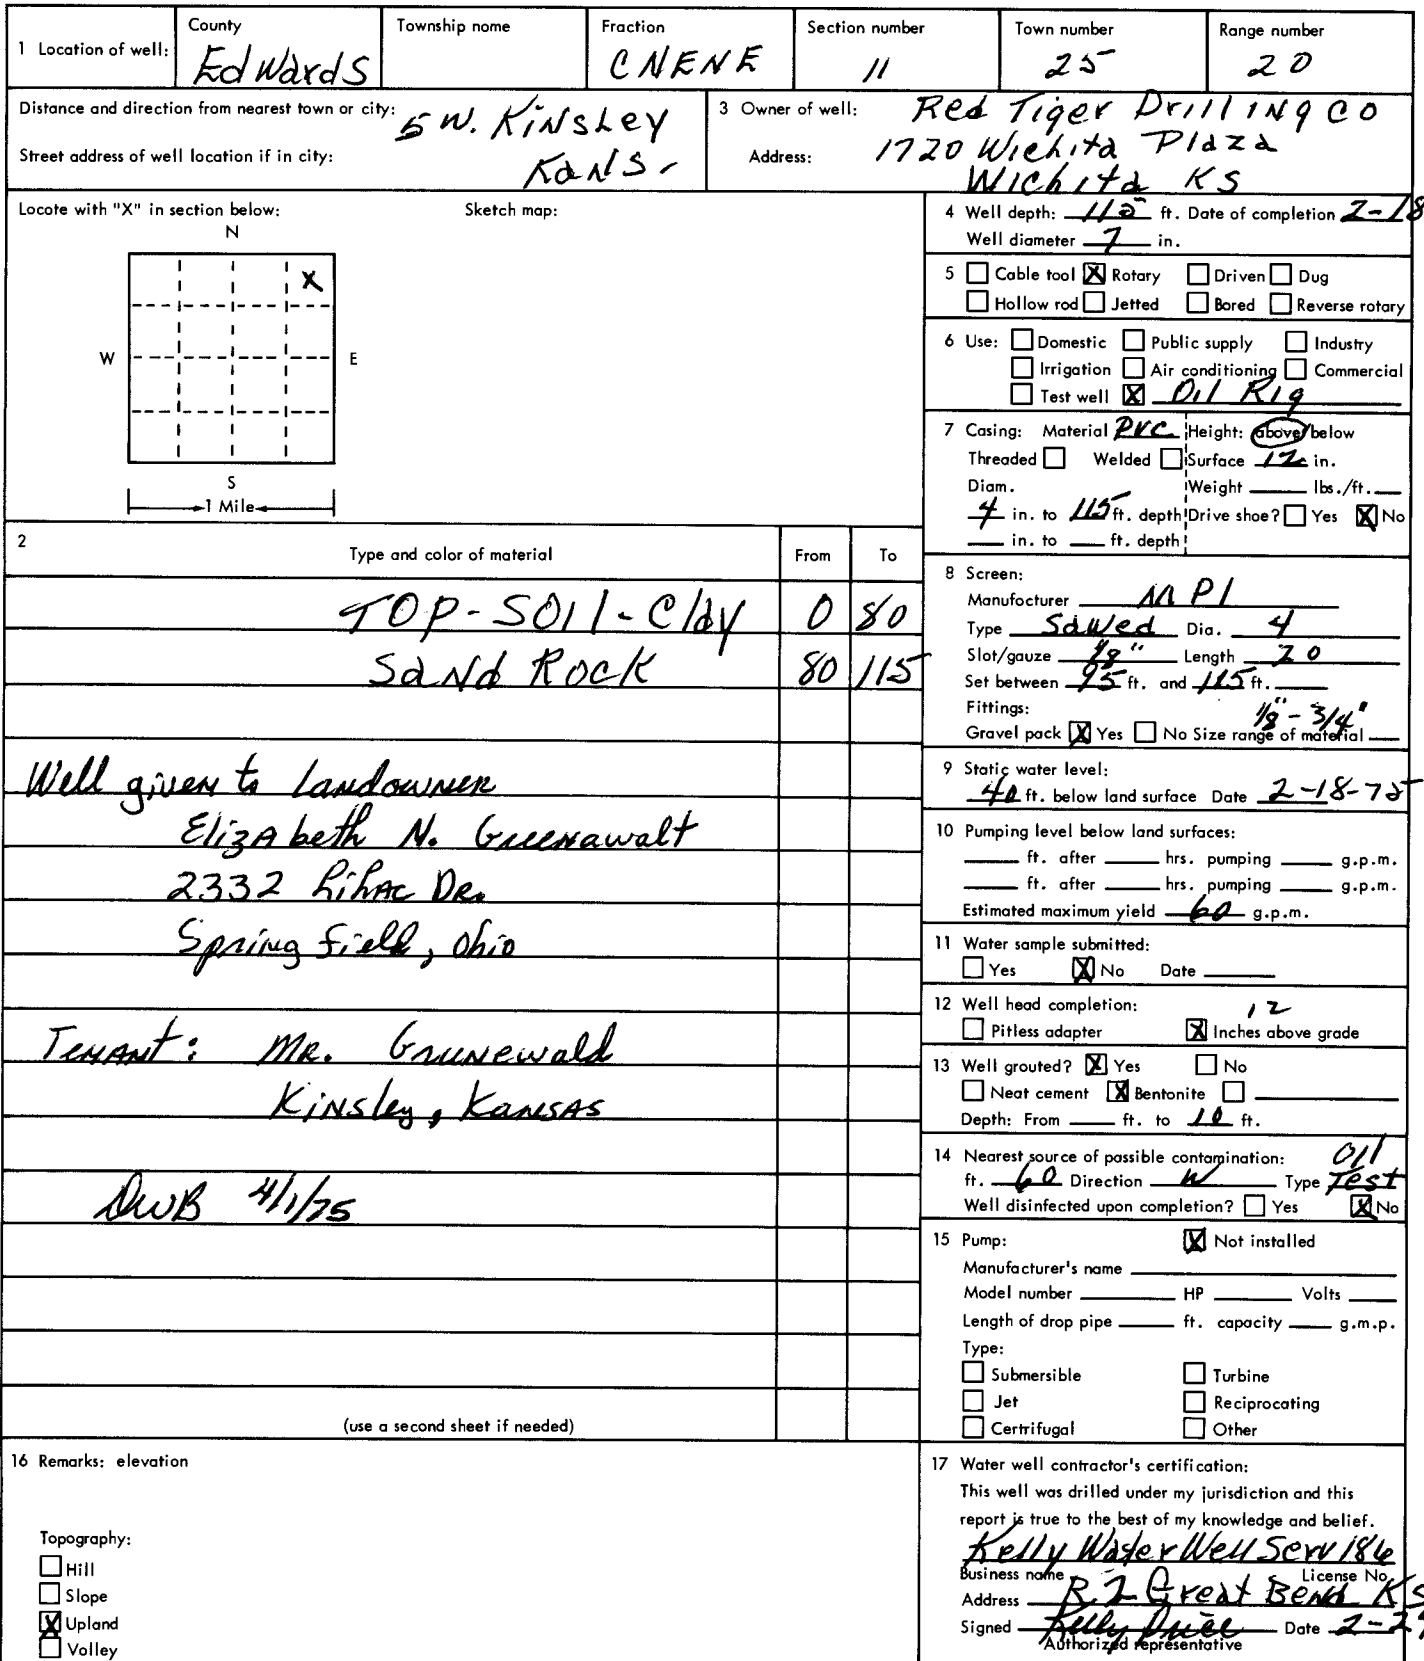 1 Location of well:
County
Edwards
Township name
Fraction
CNENE
Section number
11
Town number
25
Range number
20
Distance and direction from nearest town or city: 5 W. Kinsley
Street address of well location if in city: Kans.
3 Owner of well: Red Tiger Drilling CO
Address: 1720 Wichita Plaza
Wichita KS
Locote with "X" in section below:
Sketch map:
N
X
W
E
S
1 Mile
4 Well depth: 115 ft. Date of completion 2-18
Well diameter 7 in.
5 Cable tool X Rotary Driven Dug
Hollow rod Jetted Bored Reverse rotary
6 Use: Domestic Public supply Industry
Irrigation Air conditioning Commercial
Test well X Oil Rig
7 Casing: Material PVC Height: above/below
Threaded Welded Surface 12 in.
Diam. Weight lbs./ft.
4 in. to 115 ft. depth Drive shoe? Yes X No
in. to ft. depth
2
Type and color of material From To
TOP-SOIl-Clay 0 80
Sand Rock 80 115
Well given to landowner
Elizabeth N. Greenawalt
2332 Lilac Dr.
Springfield, Ohio
Tenant: Mr. Grunewald
Kinsley, Kansas
DWB 4/1/75
(use a second sheet if needed)
8 Screen:
Manufocturer MPI
Type Sawed Dia. 4
Slot/gauze 1/8" Length 20
Set between 95 ft. and 115 ft.
Fittings: 1/8" - 3/4"
Gravel pack X Yes No Size range of material
9 Static water level:
40 ft. below land surface Date 2-18-75
10 Pumping level below land surfaces:
ft. after hrs. pumping g.p.m.
ft. after hrs. pumping g.p.m.
Estimated maximum yield 60 g.p.m.
11 Water sample submitted:
Yes X No Date
12 Well head completion: 12
Pitless adapter X Inches above grade
13 Well grouted? X Yes No
Neat cement X Bentonite
Depth: From ft. to 10 ft.
14 Nearest source of possible contamination: Oil
ft. 60 Direction W Type Test
Well disinfected upon completion? Yes X No
15 Pump: X Not installed
Manufacturer's name
Model number HP Volts
Length of drop pipe ft. capacity g.m.p.
Type:
Submersible Turbine
Jet Reciprocating
Certrifugal Other
16 Remarks: elevation
Topography:
Hill
Slope
X Upland
Volley
17 Water well contractor's certification:
This well was drilled under my jurisdiction and this
report is true to the best of my knowledge and belief.
Kelly Water Well Serv 186
Business name License No.
Address R.2 Great Bend KS
Signed Kelly Price Date 2-29
Authorized representative